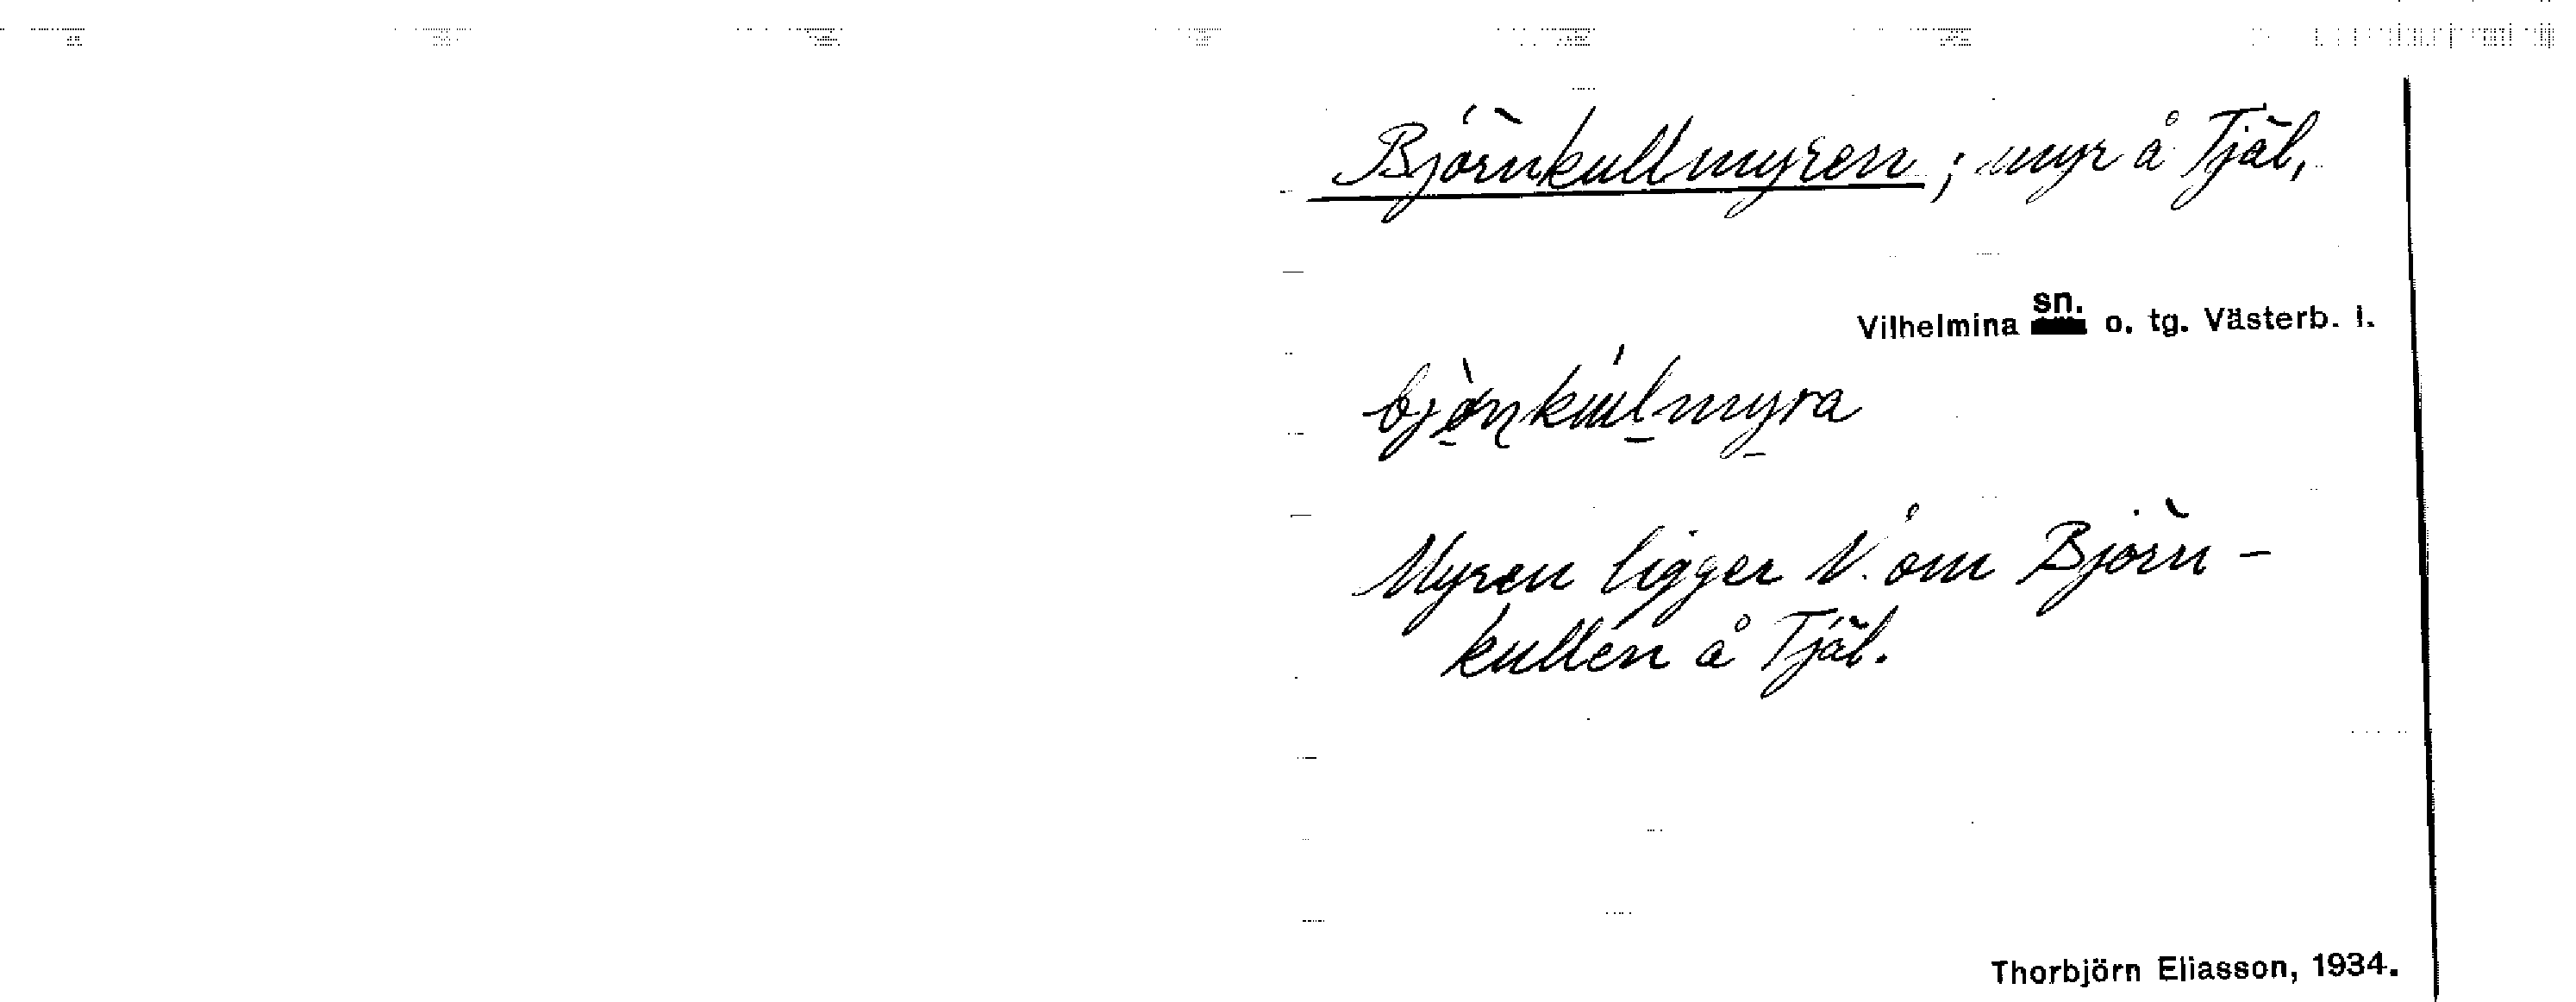 Björnkullmyren; myr å Tjäl,
Vilhelmina sn. o. tg. Västerb. l.
Myren ligger V. om Björn-
kullen å Tjäl.
Thorbjörn Eliasson, 1934.